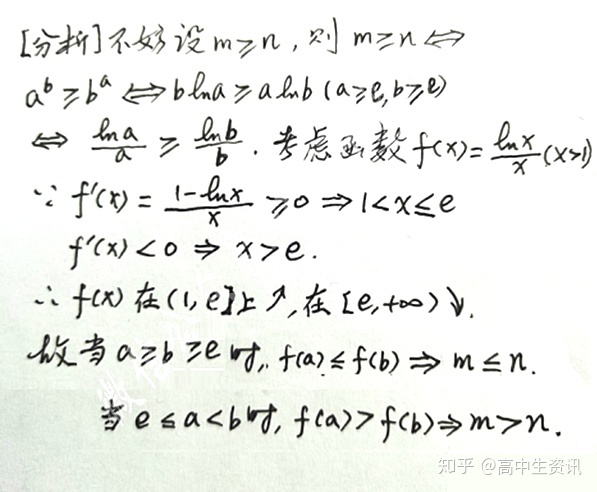 [分析]不妨设 m≥n, 则 m≥n ⇔
a^b ≥ b^a ⇔ b ln a ≥ a ln b (a≥e, b≥e)
⇔ \frac{ln a}{a} ≥ \frac{ln b}{b}. 考虑函数 f(x)=\frac{ln x}{x} (x>1)
∵ f'(x) = \frac{1-ln x}{x} ≥0 ⇒ 1<x≤e
f'(x) <0 ⇒ x>e.
∴ f(x) 在 (1, e]上↗, 在 [e,+∞) ↘.
故当 a≥b≥e 时, f(a)≤f(b) ⇒ m≤n.
当 e≤a<b时, f(a)>f(b)⇒m>n.
知乎 @高中生资讯